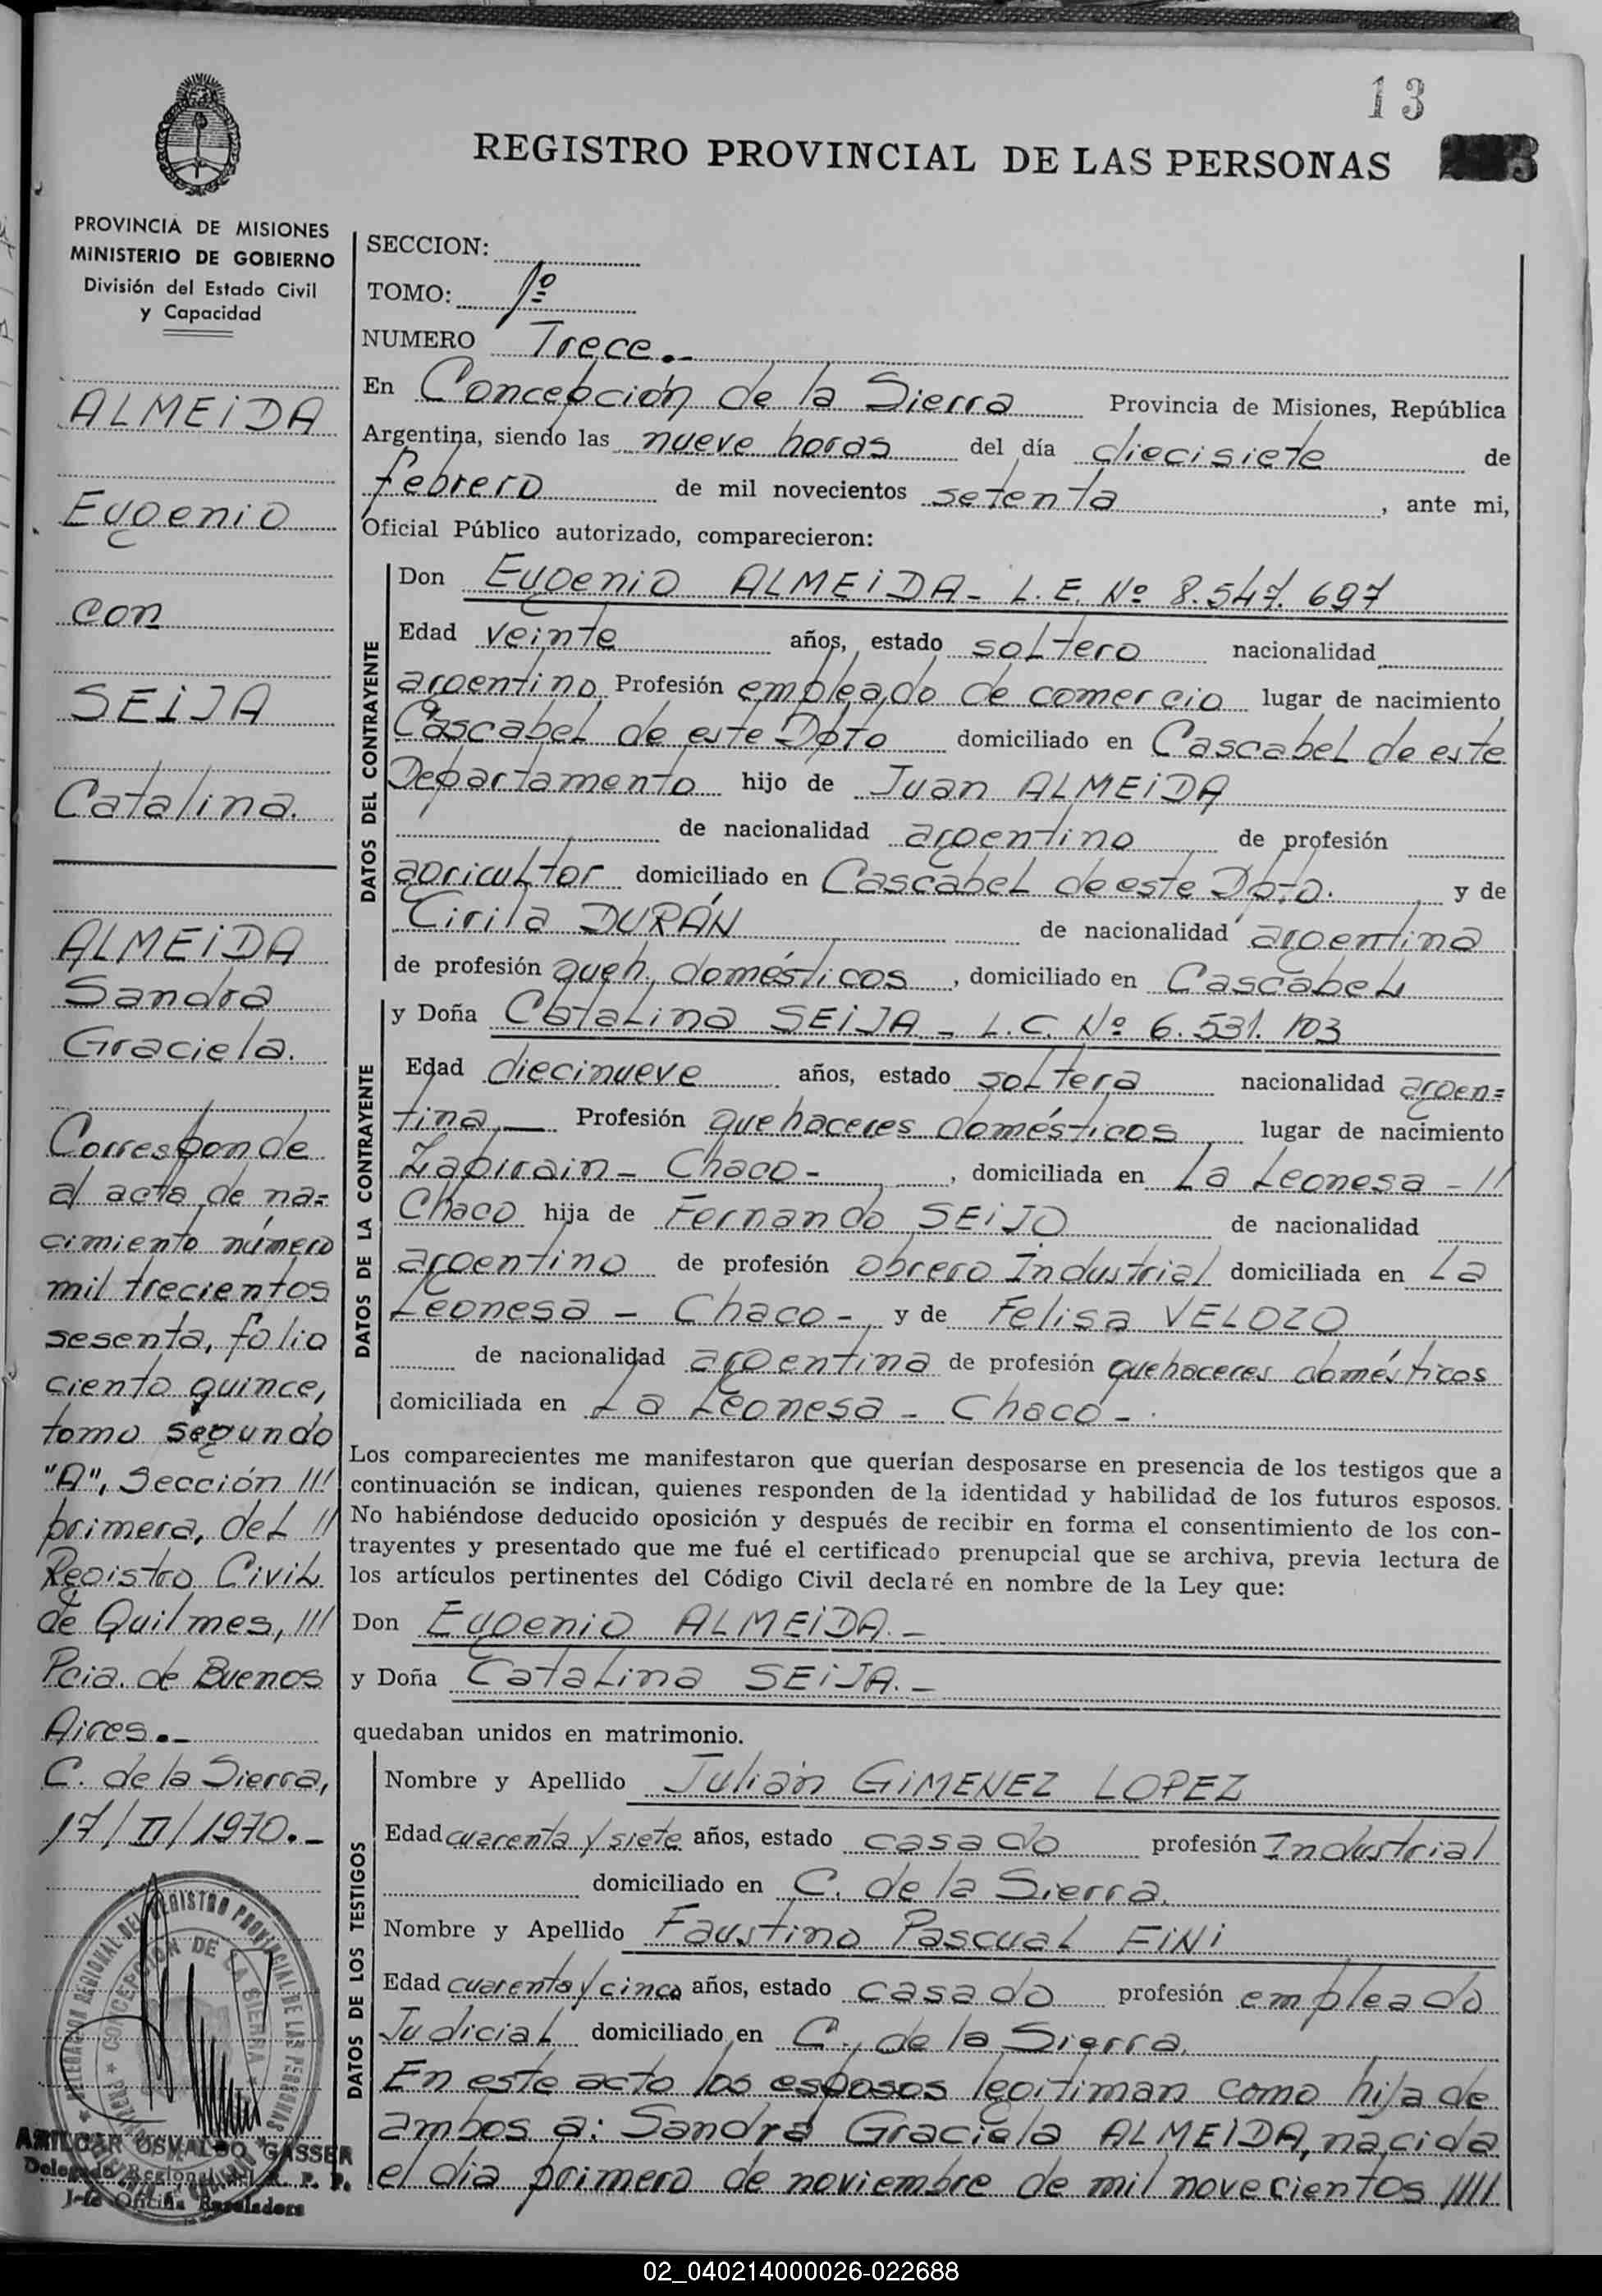 13
REGISTRO PROVINCIAL DE LAS PERSONAS
PROVINCIA DE MISIONES
MINISTERIO DE GOBIERNO
División del Estado Civil
y Capacidad
ALMEiDA
Eugenio
con
SEiJA
Catalina.
ALMEiDA
Sandra
Graciela.
Corresponde
al acta de na=
cimiento número
mil trecientos
sesenta, folio
ciento quince,
tomo segundo
"A", Sección ///
primera, del //
Registro Civil
de Quilmes, ///
Pcia. de Buenos
Aires.-
C. de la Sierra,
17/II/1970.-
DELEGACION REGIONAL DEL REGISTRO PROVINCIAL DE LAS PERSONAS
CONCEPCION DE LA SIERRA
AMILCAR OSVALDO GASSER
Delegado Regional del R. P. P.
Jefe Oficina
SECCION:
TOMO: 1º
NUMERO Trece.-
En Concepción de la Sierra Provincia de Misiones, República
Argentina, siendo las nueve horas del día diecisiete de
febrero de mil novecientos setenta, ante mi,
Oficial Público autorizado, comparecieron:
DATOS DEL CONTRAYENTE
Don Eugenio ALMEiDA- L.E. Nº 8.547.697
Edad veinte años, estado soltero nacionalidad
argentino Profesión empleado de comercio lugar de nacimiento
Cascabel de este Dpto domiciliado en Cascabel de este
Departamento hijo de Juan ALMEiDA
de nacionalidad argentino de profesión
agricultor domiciliado en Cascabel de este Dpto. y de
Cirila DURÁN de nacionalidad argentina
de profesión queh. domésticos, domiciliado en Cascabel
DATOS DE LA CONTRAYENTE
y Doña Catalina SEiJA - L.C. Nº 6.531.103
Edad diecinueve años, estado soltera nacionalidad argen=
tina, — Profesión quehaceres domésticos lugar de nacimiento
Zapirain - Chaco -, domiciliada en La Leonesa - //
Chaco hija de Fernando SEiJO de nacionalidad
argentino de profesión obrero Industrial domiciliada en La
Leonesa - Chaco -, y de Felisa VELOZO
de nacionalidad argentina de profesión quehaceres domésticos
domiciliada en La Leonesa - Chaco -.
Los comparecientes me manifestaron que querían desposarse en presencia de los testigos que a
continuación se indican, quienes responden de la identidad y habilidad de los futuros esposos.
No habiéndose deducido oposición y después de recibir en forma el consentimiento de los con-
trayentes y presentado que me fué el certificado prenupcial que se archiva, previa lectura de
los artículos pertinentes del Código Civil declaré en nombre de la Ley que:
Don Eugenio ALMEiDA.-
y Doña Catalina SEiJA.-
quedaban unidos en matrimonio.
DATOS DE LOS TESTIGOS
Nombre y Apellido Julián GiMENEZ LOPEZ
Edad cuarenta y siete años, estado casado profesión Industrial
domiciliado en C. de la Sierra.
Nombre y Apellido Faustino Pascual FiNi
Edad cuarenta y cinco años, estado casado profesión empleado
Judicial domiciliado en C. de la Sierra.
En este acto los esposos legitiman como hija de
ambos a: Sandra Graciela ALMEIDA, nacida
el día primero de noviembre de mil novecientos ////
02_040214000026-022688